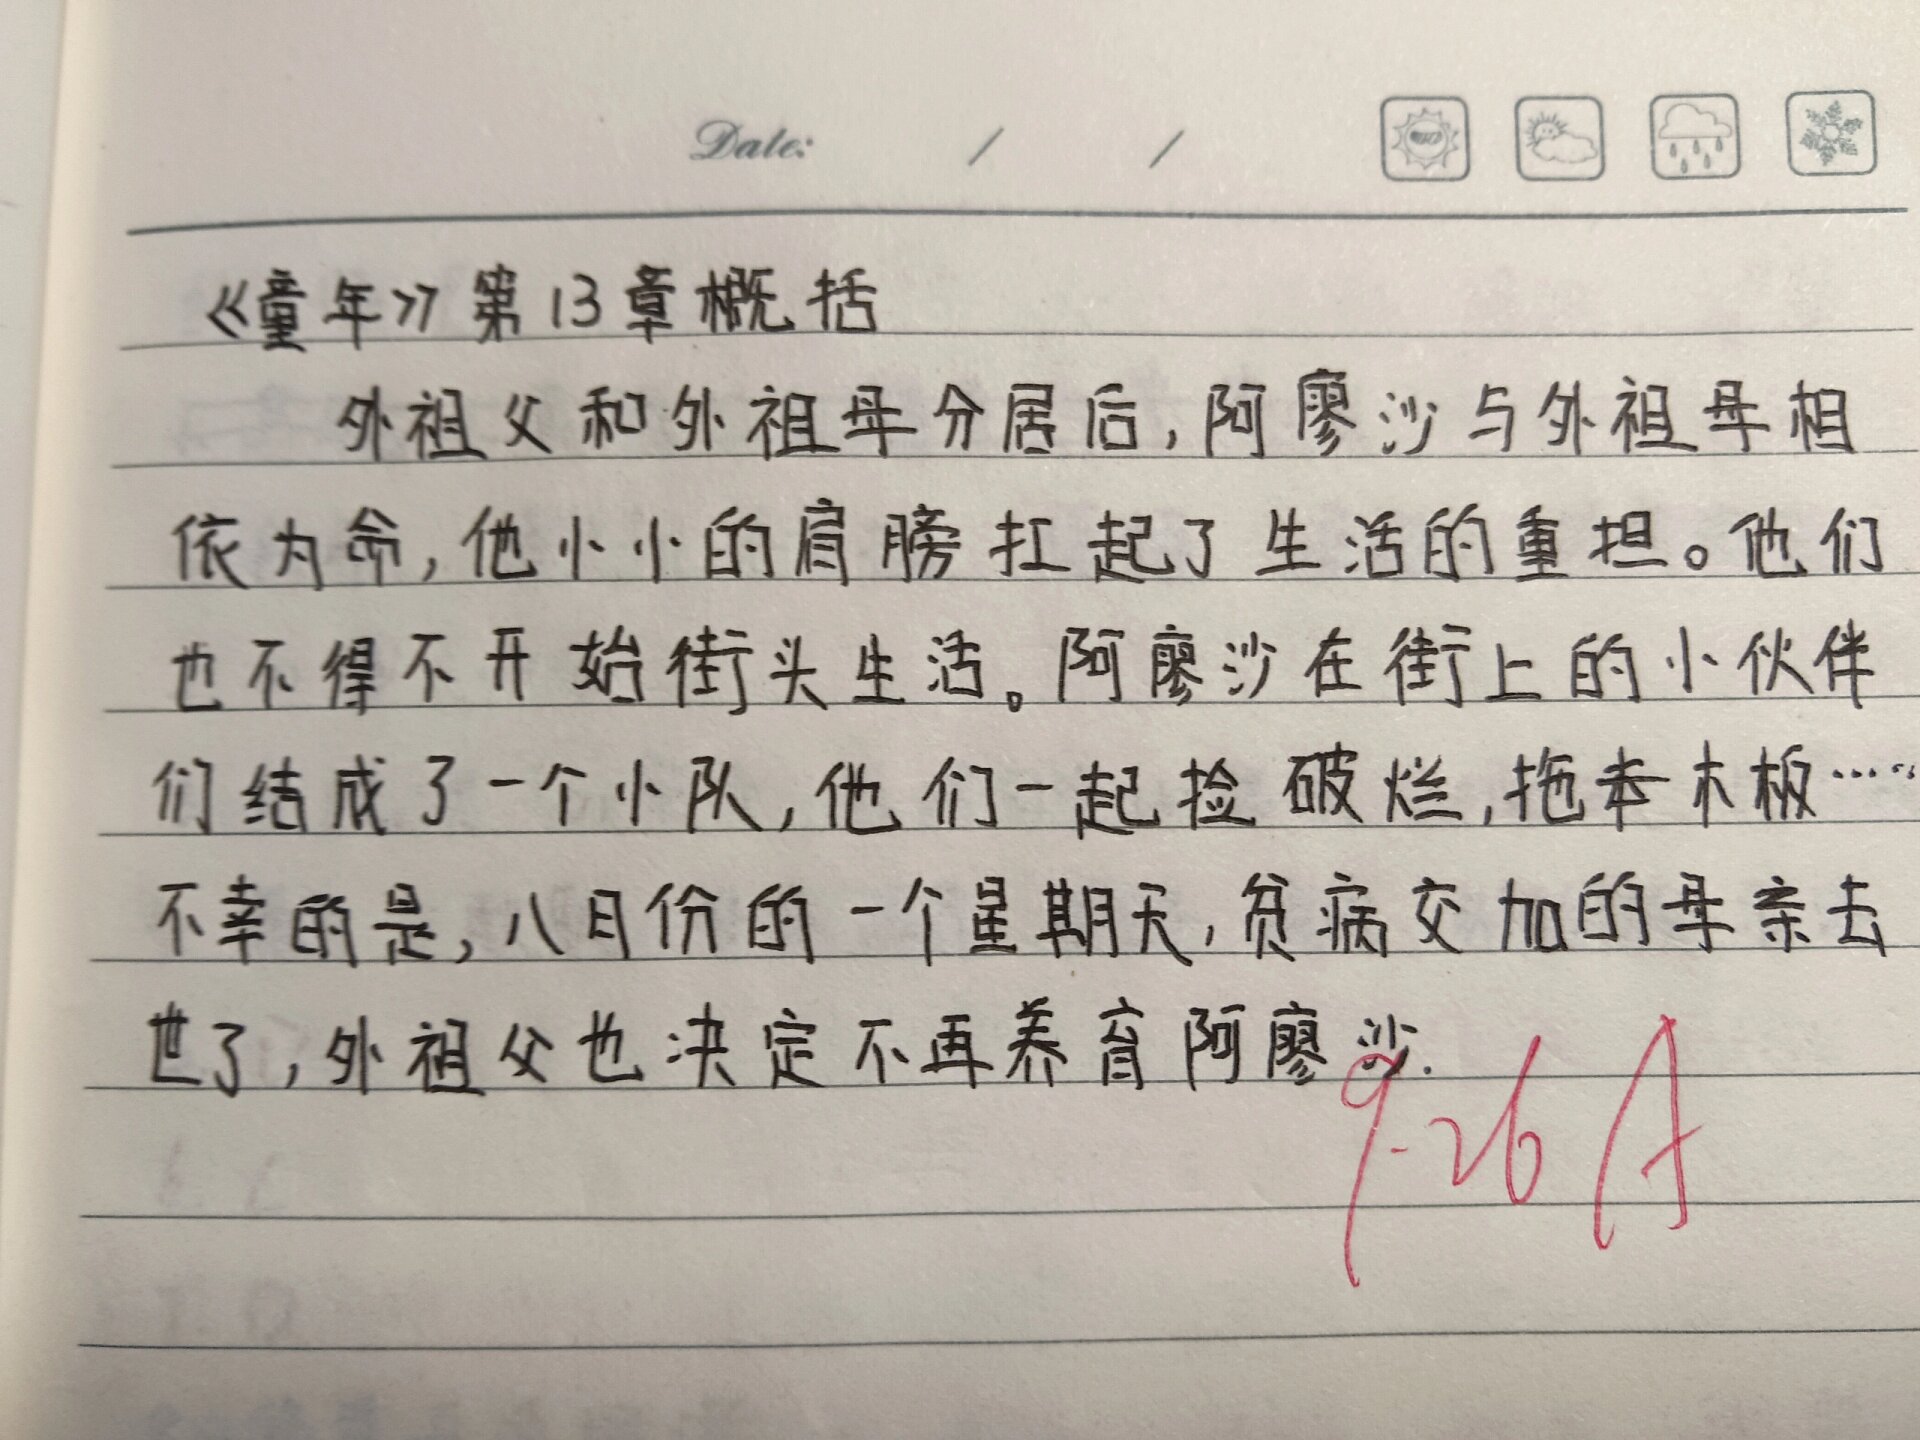 Date: / /
《童年》第13章概括
外祖父和外祖母分居后,阿廖沙与外祖母相
依为命,他小小的肩膀扛起了生活的重担。他们
也不得不开始街头生活。阿廖沙在街上的小伙伴
们结成了一个小队,他们一起捡破烂,拖木板……
不幸的是,八月份的一个星期天,贫病交加的母亲去
世了,外祖父也决定不再养育阿廖沙.
9.26 A